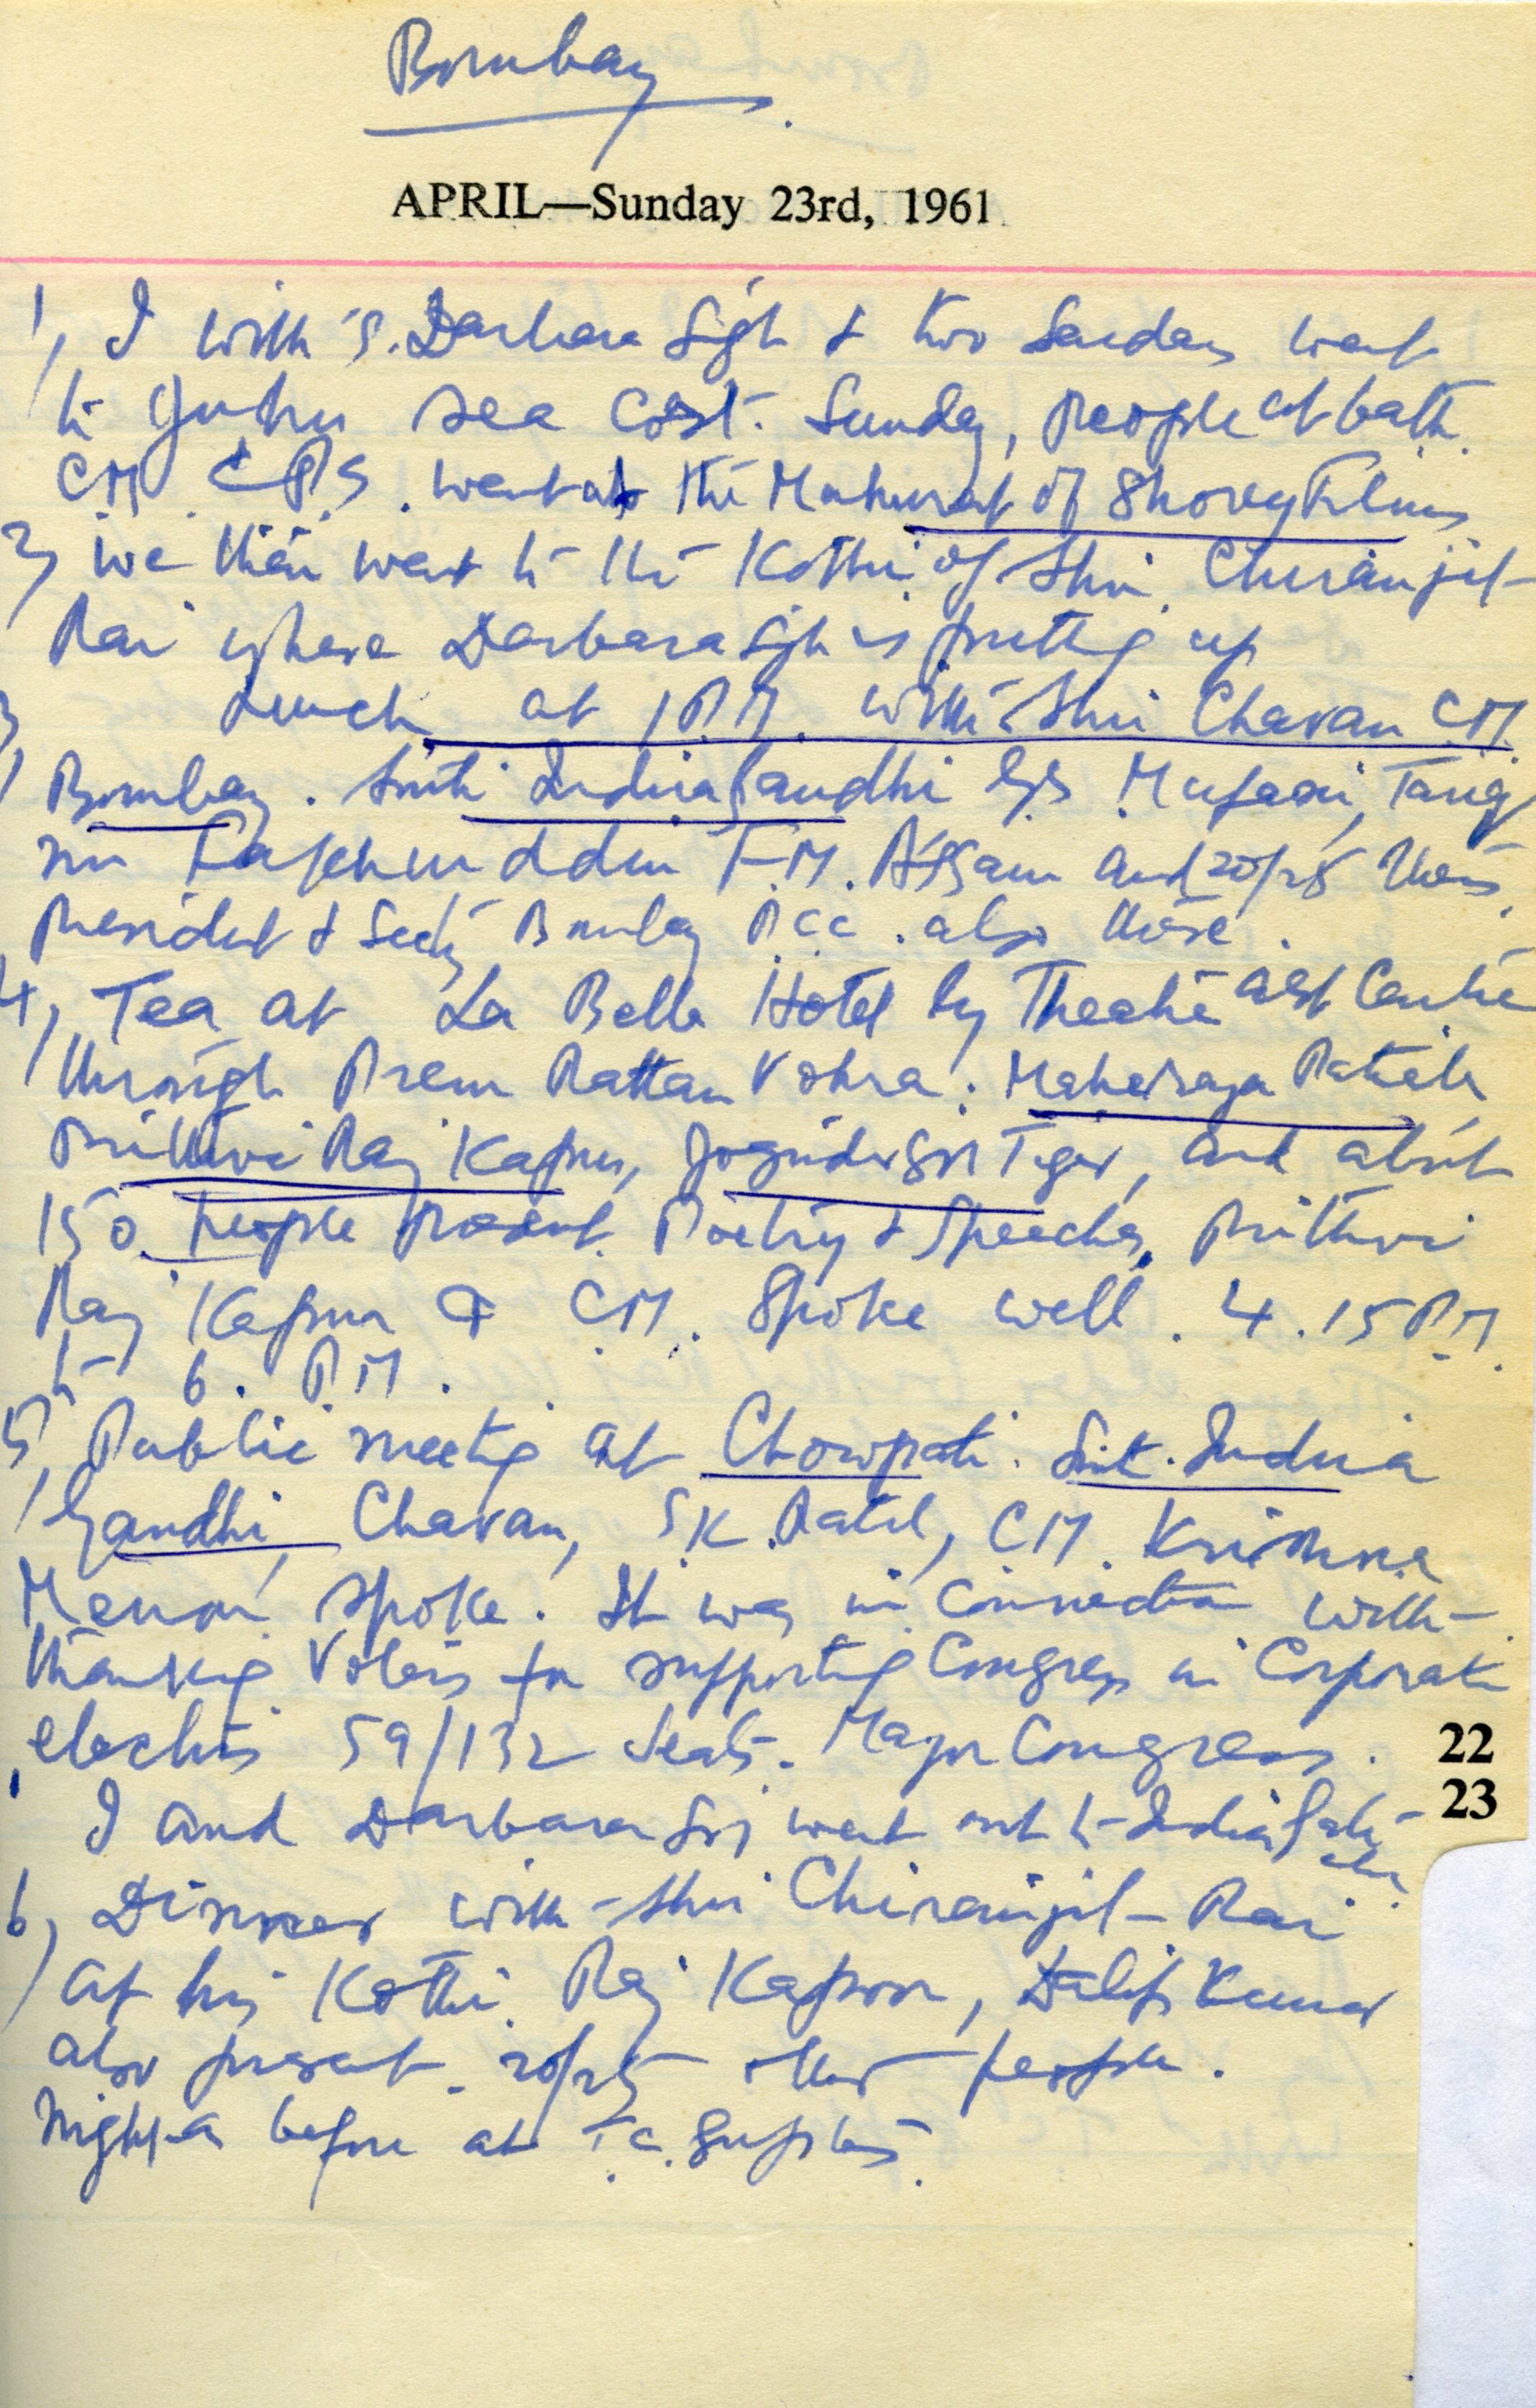 Bombay
APRIL—Sunday 23rd, 1961
1, I with S. Darbara Sigh & two Sardars went
to Juhu sea cost. Sunday, people at bath.
CM & P.S. went to the Mahurat of Shorey Films
2, we then went to the Kothi of Shri Chiranjit
Rai where Darbara Sigh is putting up
3, Lunch at 1 P.M. with Shri Chavan CM
Bombay. Smti Indira Gandhi Gs Mufaai, Tariq,
Fakhruddin F.M. Assam and 20/25 others.
President & Secty Bombay P.C.C. also there.
4, Tea at La Bella Hotel by Theatre art Centre
through Prem Rattan Vohra. Maharaja Patiala
Prithvi Raj Kapur, Jogindr Sgh Tiger, and about
150 people present. Poetry & Speeches. Prithvi
Raj Kapur & CM. Spoke well. 4.15 P.M.
to 6. P.M.
5, Public meeting at Chowpati. Smt. Indira
Gandhi, Chavan, S.K. Patil, CM. Krishna
Menon spoke. It was in connection with
thanking Voters for supporting Congress in Corporati
elections 59/132 seats. Mayor Congress.
22
23
I and Darbara Sgj went out to India Gate
6, Dinner with Shri Chiranjit Rai
at his Kothi. Raj Kapoor, Dalip Kumar
also present. 20/25 other people.
Night before at T.C. Guptas.